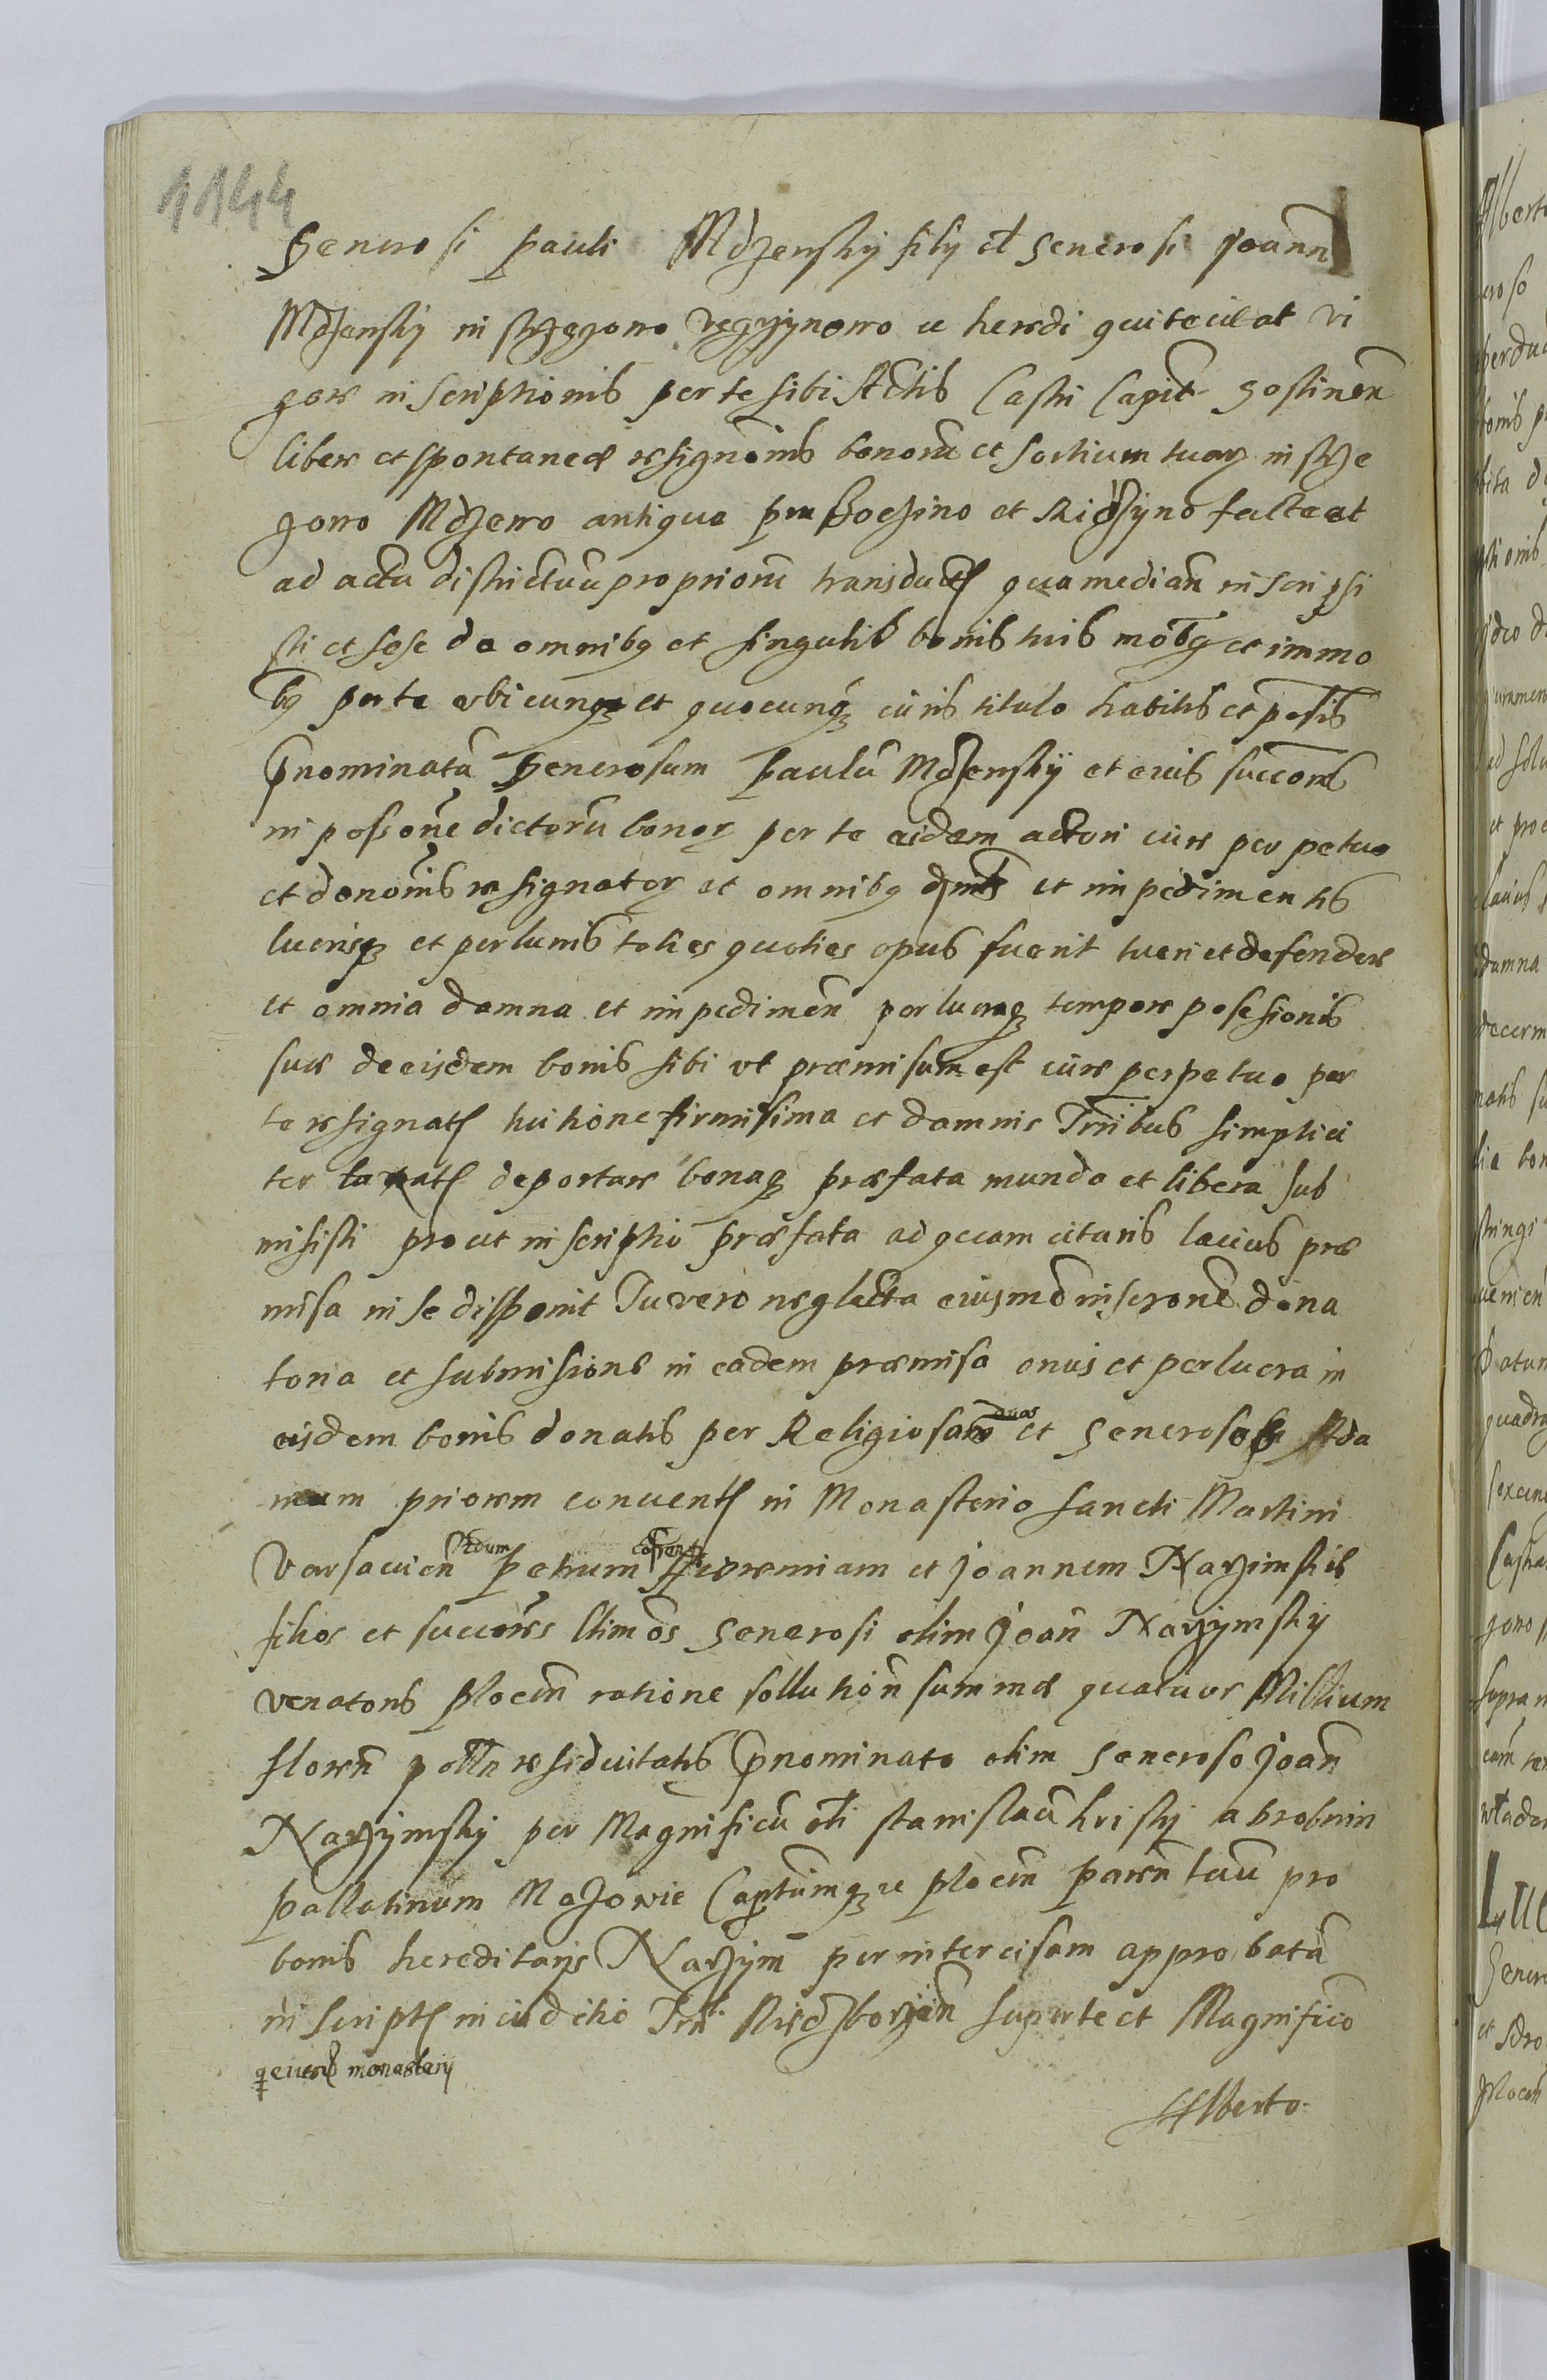 1144
Generosi Pauli Mdzenskij filij ol Generosi Joann
Mdzenskij in Strzegowo Vegrzynowo u heredi qui te citat vi
gore inscriptionis per te sibi Actis Castri Capit Gostinen
libere et spontaneæ resignonis bonorũ et sortium tuarz in strze
gowo Mdzewo antiqua et factæ at
ad acta districtuũ propriorũ transduct qua median inscripsi
sti et sese de omnibq et singulis bonis tuis mobq et immo
bq per te ubicunqz et quocunqz iuris titulo habitis et possis
pnominatũ Generosum Paulũ Mdzenskij et eius succorus
in possone dictorũ bonorz per te eidem actori iure perpetuo
et dononis resignatorz et omnibq et impedimentis
lucrisqz et perlucris toties quoties opus fuerit tueri et defendere
et omnia damna et impedimen perlucraqz tempore possessionis
suæ de eisdem bonis sibi ut præmissum est iure perpetuo per
te resignat tuitione firmissima et damnis Trribus simplici
ter taxat deportare bonaqz præfata munda et libera sub
misisti prout inscriptio præfata ad quam citaris latius præ
missa in se disponit Tu vero neglecta eiusmo inscrone dona
toria et submissione in eadem præmissa onus et perlucra in
eisdem bonis donatis per Religiosum duos et Generosos Ada
mum priorem convent in Monasterio Sancti Martini
Varsavien Petrum Hieremiam et Joannem Narzimskis
filios et succores Generosi olim Joan Narzymskij
venatoris Plocen ratione sollution summæ quatuor Millium
floren residuitatis pnominato olim Generoso Joan
Narzymskij per Magnificũ oli Stanislaũ Kriskij a Drobnin
Pallatinum Mazowie Captumqz Plocen paren tuũ pro
bonis hereditarijs Narzym per intercisam approbatã
inscript in iuditio super te et Magnifico
monasterij
Alberto